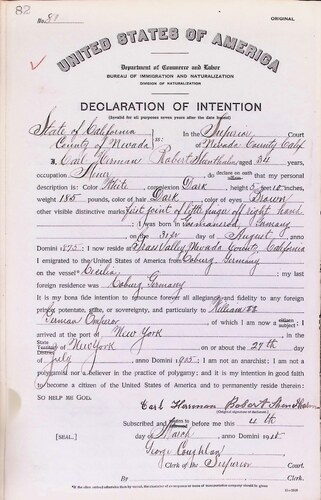 82
No. 81
ORIGINAL
UNITED STATES OF AMERICA
Department of Commerce and Labor
BUREAU OF IMMIGRATION AND NATURALIZATION
DIVISION OF NATURALIZATION
DECLARATION OF INTENTION
(Invalid for all purposes seven years after the date hereof)
State of California
In the Superior Court
County of Nevada ss:
of Nevada County Calif
I, Carl Herman Robert, aged 34 years,
occupation Miner, do declare on oath that my personal
description is: Color White, complexion Dark, height 5 feet 10 inches,
weight 185 pounds, color of hair Dark, color of eyes Brown
other visible distinctive marks first joint of fifth finger of right hand
; I was born in Germany
on the 31st day of August, Anno
Domini 1875; I now reside at Grass Valley, Nevada County, California
I emigrated to the United States of America from Coburg, Germany
on the vessel Cecilia; my last
foreign residence was Coburg Germany
It is my bona fide intention to renounce forever all allegiance and fidelity to any foreign
prince, potentate, state, or sovereignty, and particularly to William II
German Emperor, of which I am now a subject; I
arrived at the port of New York, in the
State of New York on or about the 27th day
of July, anno Domini 1905; I am not an anarchist; I am not a
polygamist nor a believer in the practice of polygamy; and it is my intention in good faith
to become a citizen of the United States of America and to permanently reside therein:
SO HELP ME GOD.
Carl Herman Robert
(Original signature of declarant)
Subscribed and sworn to before me this 4th
[SEAL.] day of March, anno Domini 191
George Coughlan
Clerk of the Superior Court.